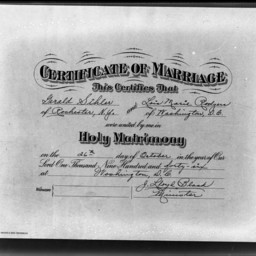 CERTIFICATE OF MARRIAGE
This Certifies That
Gerald Sibler and Lois Marie Rodgers
of Rochester, N.Y. of Washington D.C.
were united by me in
Holy Matrimony
on the 26th day of October in the year of Our
Lord One Thousand Nine Hundred and forty-six
at Washington, D.C.
J. Lloyd Black
Minister
Witness